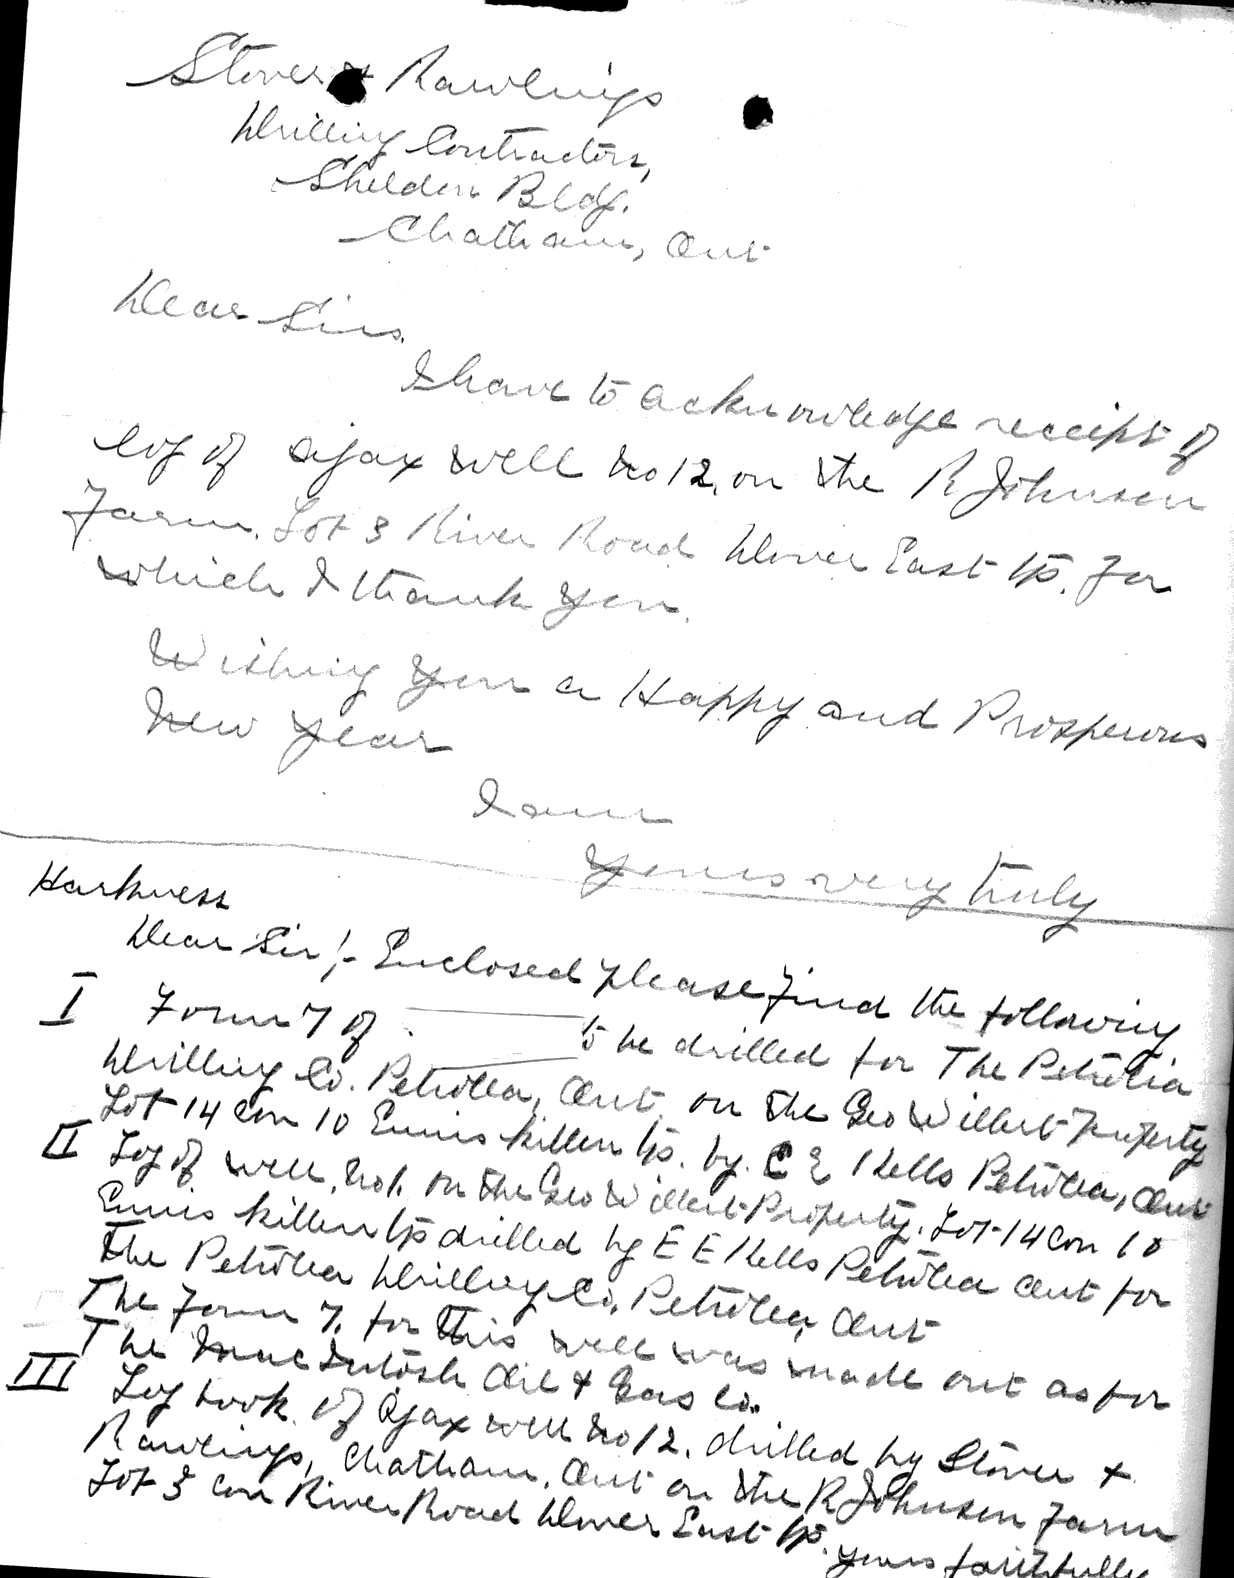 Stover & Rawlings
Drilling Contractors,
Sheldon Bldg.
Chatham, Ont
Dear Sirs.
I have to acknowledge receipt of
log of Ajax well No 12, on the R Johnson
Farm. Lot 3 River Road Dover East tp. For
which I thank you.
Wishing you a Happy and Prosperous
New Year
I am
Yours very truly
Harkness
Dear Sir;- Enclosed please find the following
I Form 7 of to be drilled for The Petrolia
Drilling Co. Petrolea, Ont, on the Geo Willert Property
Lot 14 Con 10 Enniskillen tp. by. E E Kells Petrolea, Ont
II Log of well, No 1. on the Geo Willert Property. Lot-14 Con 10
Enniskillen tp drilled by E E Kells Petrolea Ont for
The Petrolea Drilling Co, Petrolea, Ont
The Form 7. for this well was made out as for
The MacIntosh Oil & Gas Co.
III Log book of Ajax well No 12. drilled by Stover &
Rawlings, Chatham, Ont on the R Johnson Farm
Lot 3 Con River Road Dover East tp.
yours faithfully